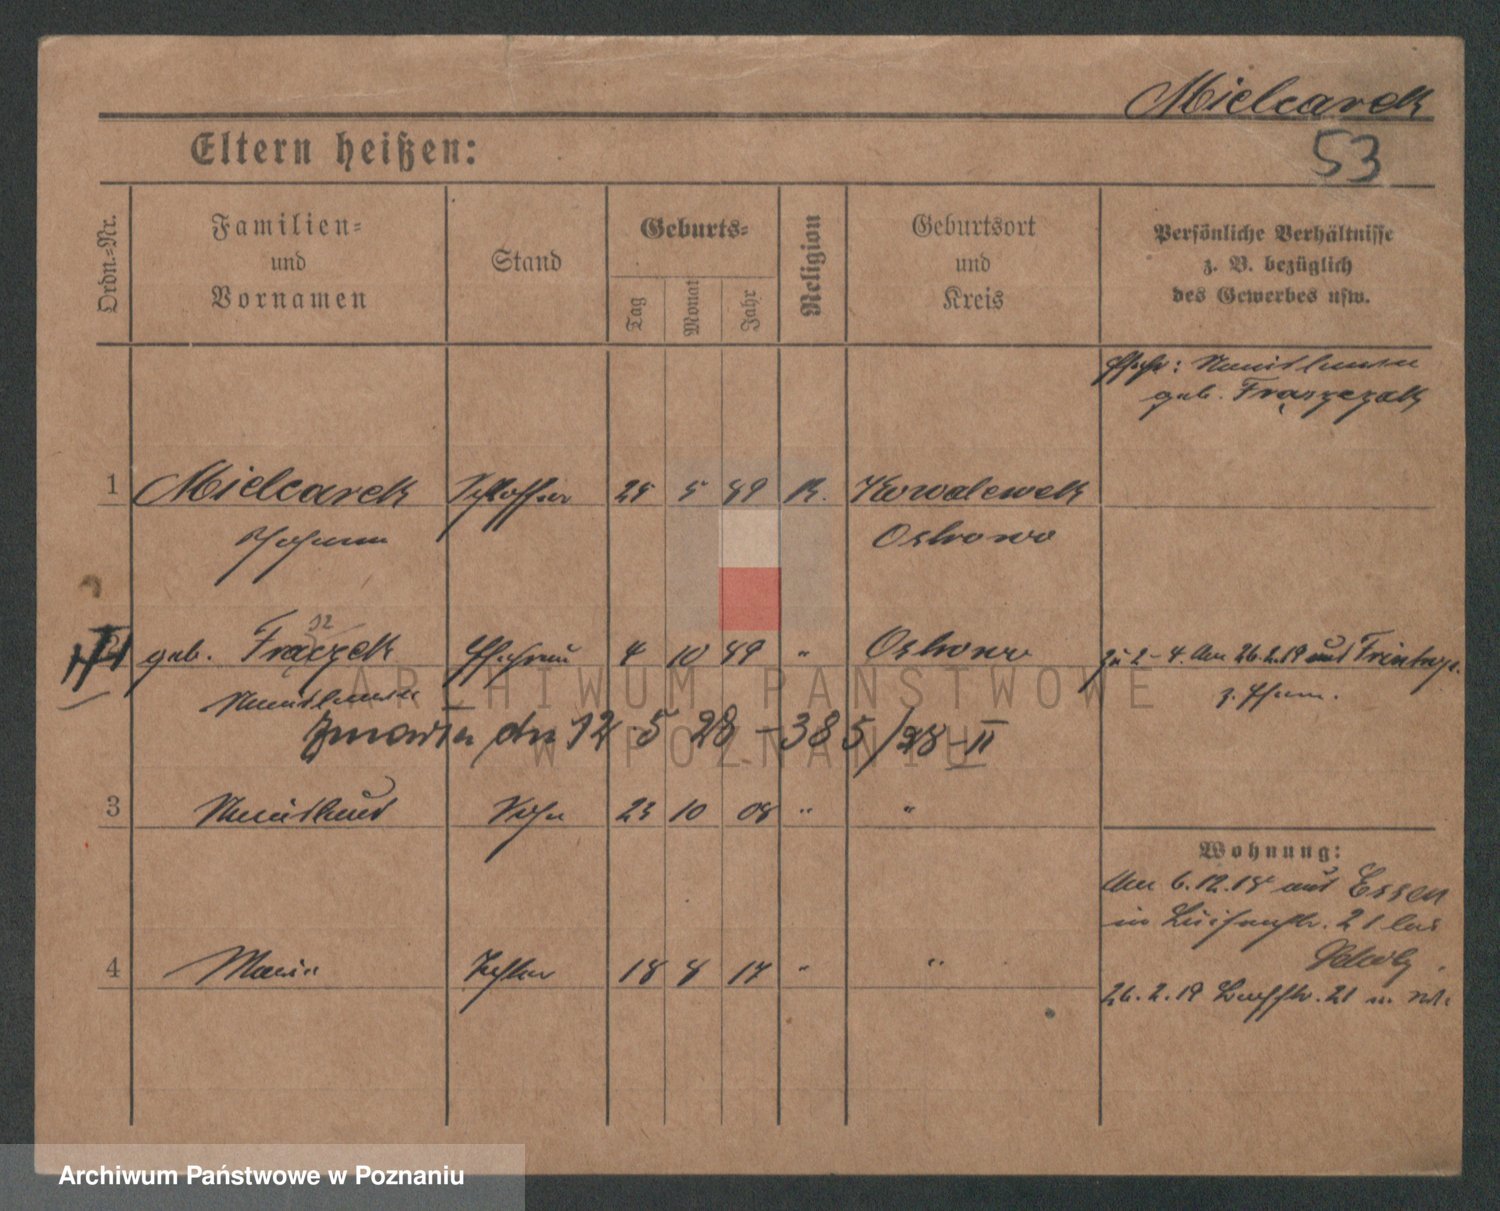 Mielcarek
53
Eltern heißen:
Ordn.-Nr.
Familien-
und
Vornamen
Stand
Geburts-
Tag
Monat
Jahr
Religion
Geburtsort
und
Kreis
Persönliche Verhältnisse
z. B. bezüglich
des Gewerbes usw.
geb. Frąszczak
1 Mielcarek Schlosser 25 5 89 K. Kowalewek
Johann Ostrowo
geb. Ehefrau 4 10 89 " Ostrowo
zu 2-4. Am 26.2.19 aus
den 12 5 28 - 385/28 II
3 Sohn 23 10 08 " "
Wohnung:
Am 6.12.18 aus Essen
in Luisenstr. 21 bei
4 Maria Tochter 18 8 17 " "
26.2.19 21
ARCHIWUM PAŃSTWOWE
W POZNANIU
Archiwum Państwowe w Poznaniu